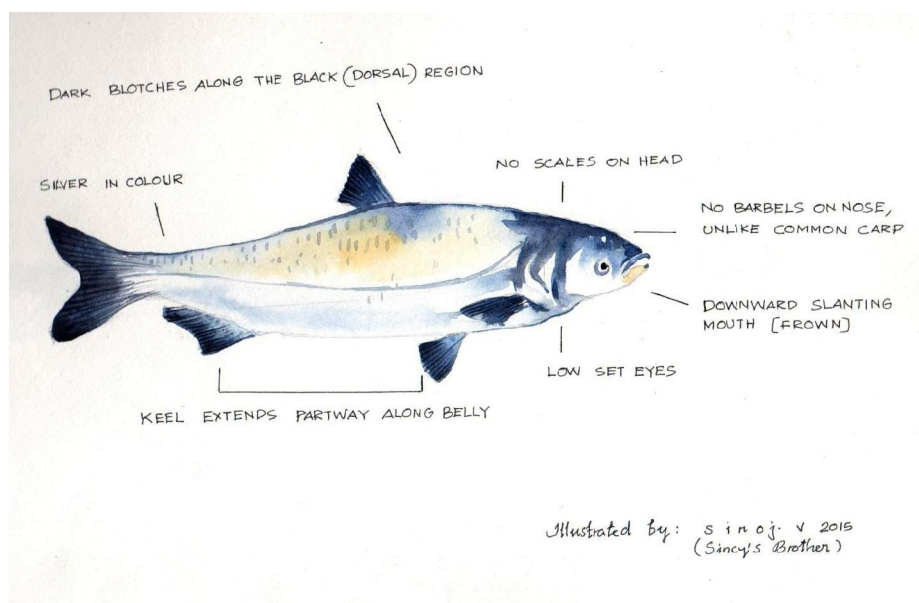 DARK BLOTCHES ALONG THE BLACK (DORSAL) REGION
SILVER IN COLOUR
NO SCALES ON HEAD
NO BARBELS ON NOSE,
UNLIKE COMMON CARP
DOWNWARD SLANTING
MOUTH [FROWN]
LOW SET EYES
KEEL EXTENDS PARTWAY ALONG BELLY
Illustrated by: sinoj. v 2015
(Sincy's Brother)